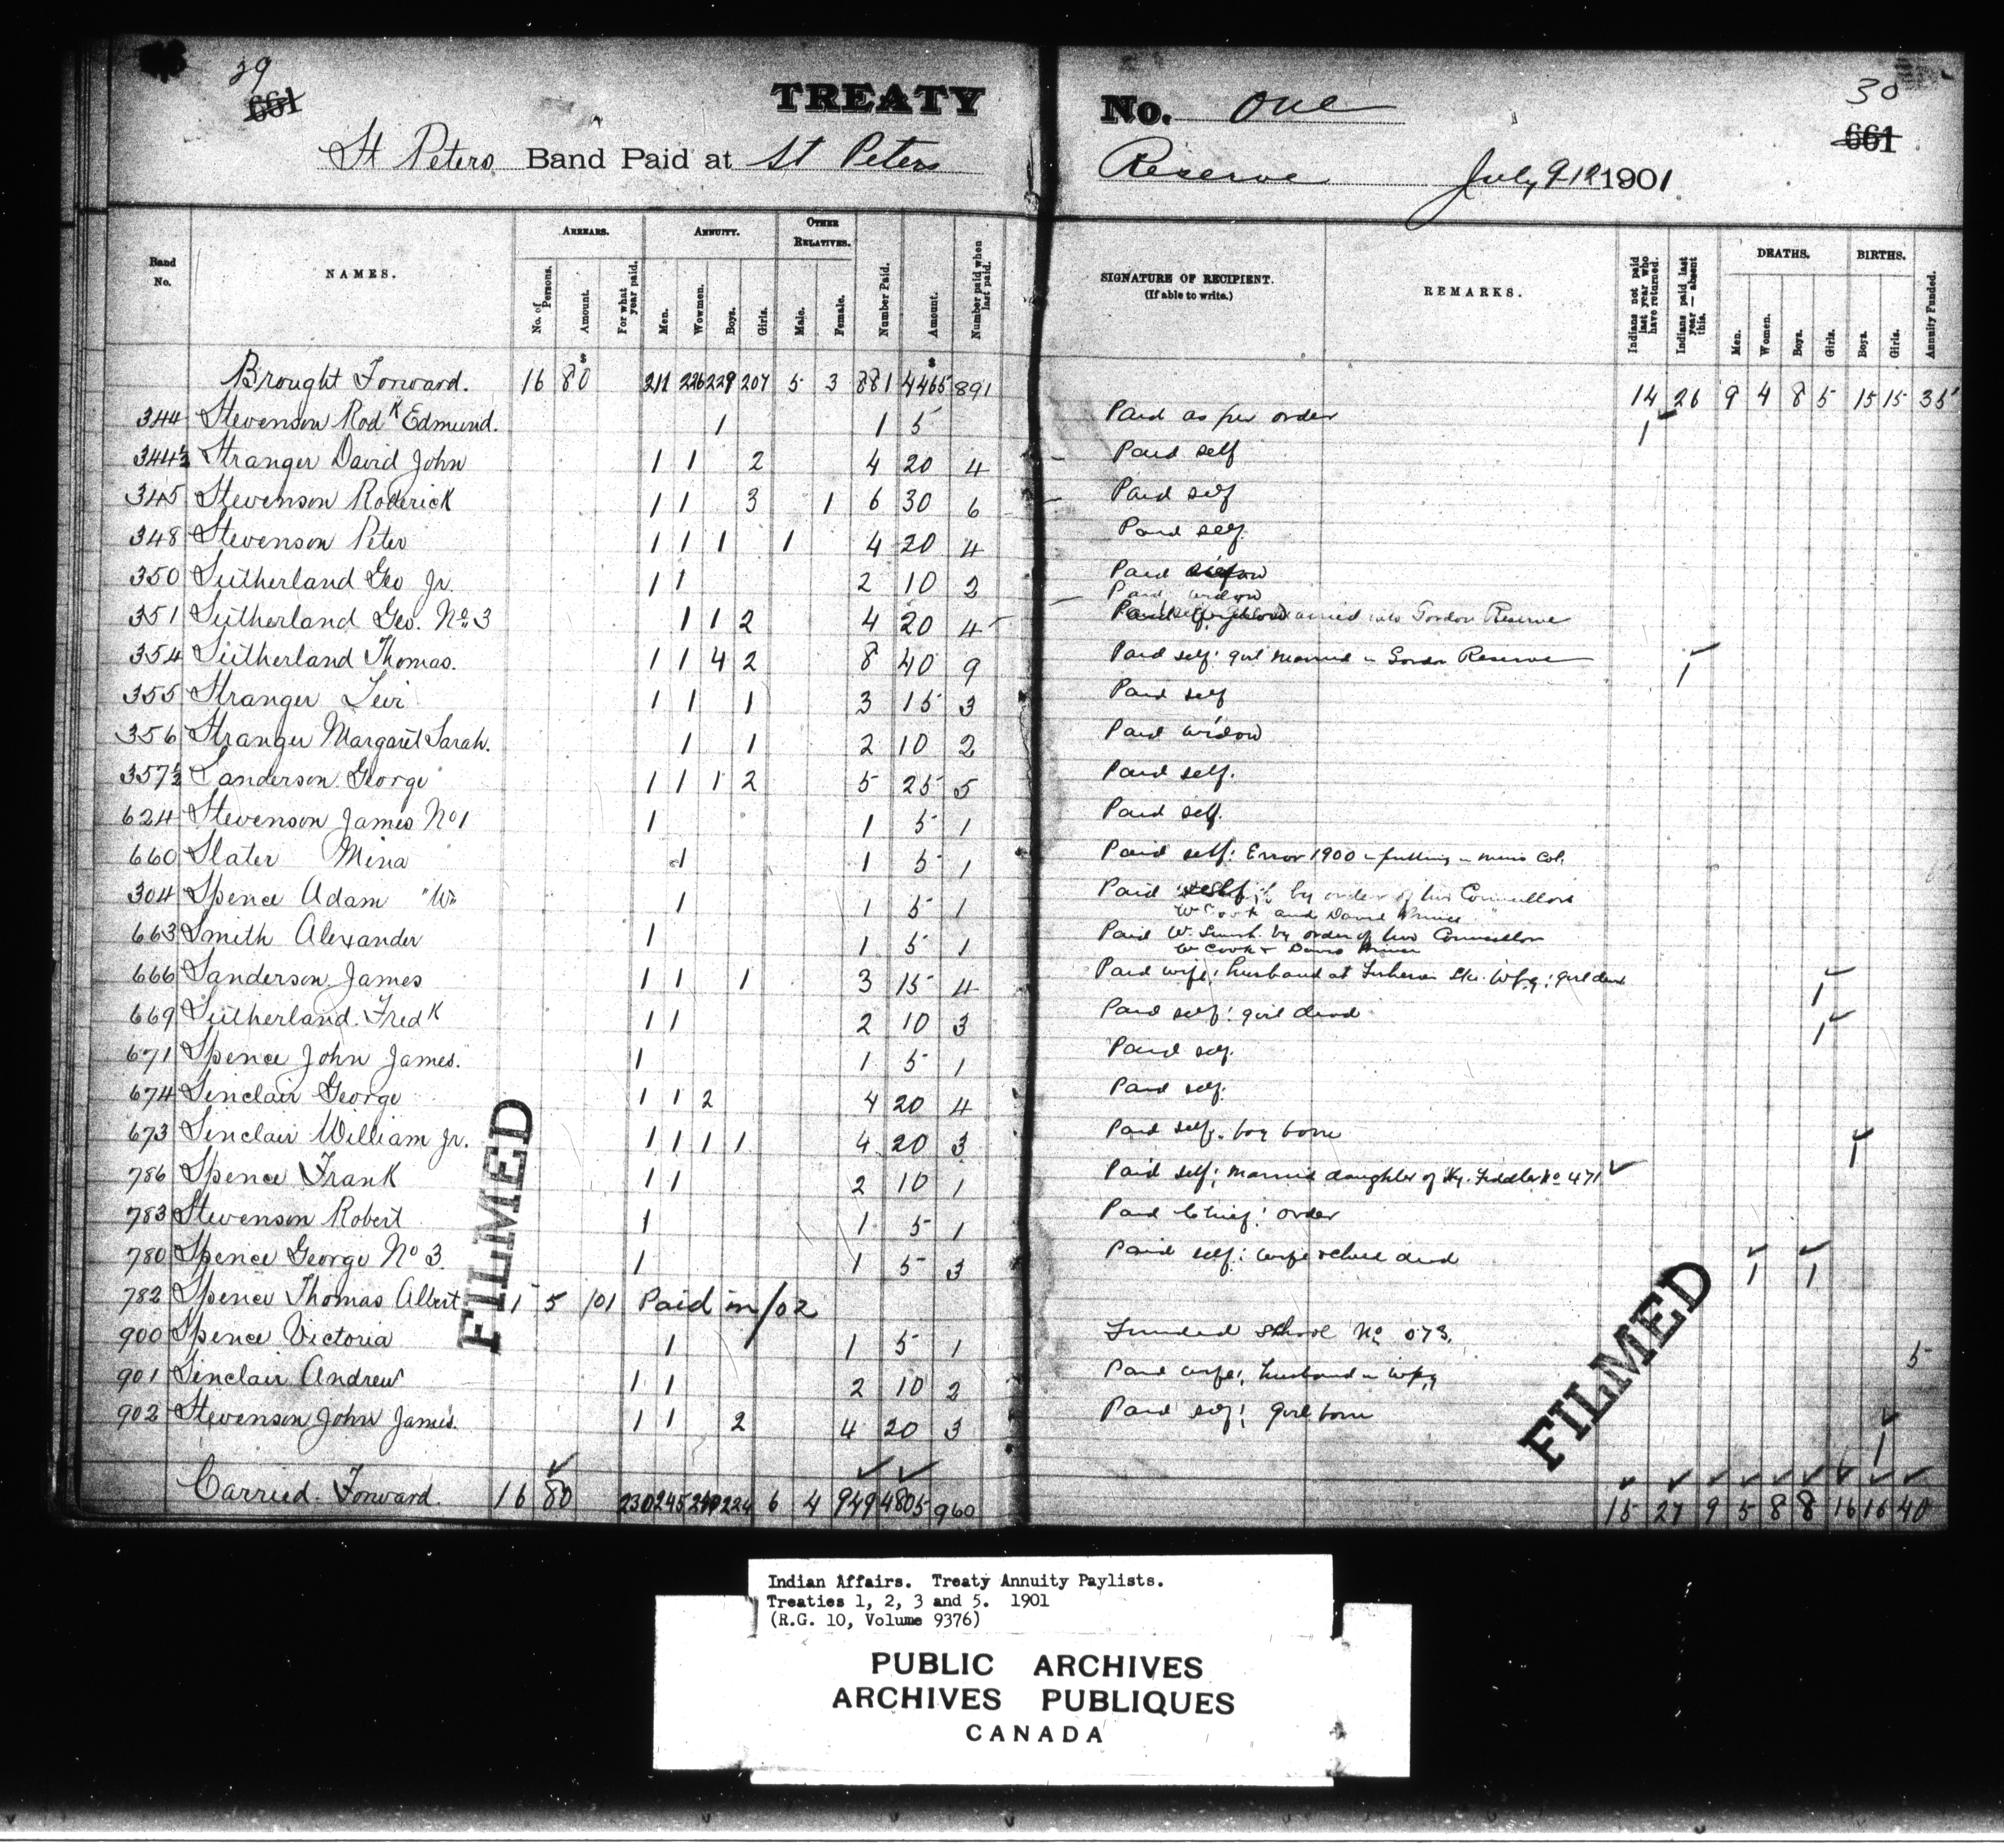 29
661
TREATY No. One
30
661
St Peters Band Paid at St Peters Reserve July 9 12 1901
Band No.
NAMES.
ARREARS.
No. of Persons.
Amount.
For what year paid.
ANNUITY.
Men.
Wowmen.
Boys.
Girls.
OTHER RELATIVES.
Male.
Female.
Number Paid.
Amount.
Number paid when last paid.
SIGNATURE OF RECIPIENT.
(If able to write.)
REMARKS.
Indians not paid last year who have returned.
Indians paid last year — absent this.
DEATHS.
Men.
Women.
Boys.
Girls.
BIRTHS.
Boys.
Girls.
Annuity Funded.
Brought Forward. 16 80 211 226 229 207 5 3 881 4465 891 14 26 9 4 8 5 15 15 35
344 Stevenson Rodk Edmund. 1 1 5 Paid as per order 1
344½ Stranger David John 1 1 2 4 20 4 Paid self
345 Stevenson Roderick 1 1 3 1 6 30 6 Paid self
348 Stevenson Peter 1 1 1 1 4 20 4 Paid self.
350 Sutherland Geo Jr. 1 1 2 10 2 Paid
Paid widow
351 Sutherland Geo. No. 3 1 1 2 4 20 4 Gordon Reserve
354 Sutherland Thomas. 1 1 4 2 8 40 9 Paid self: girl married in Gordon Reserve 1
355 Stranger Levi 1 1 1 3 15 3 Paid self
356 Stranger Margaret Sarah. 1 1 2 10 2 Paid widow
357½ Sanderson George 1 1 1 2 5 25 5 Paid self.
624 Stevenson James No 1 1 1 5 1 Paid self.
660 Slater Mina 1 1 5 1 Paid self: Error 1900 in putting in mens Col.
304 Spence Adam "W" 1 1 5 1 Paid by order of two Councillors
W Cook and David Prince
663 Smith Alexander 1 1 5 1 Paid W. Smith by order of two Councillors
W Cook & David Prince
666 Sanderson James 1 1 1 3 15 4 Paid wife; husband at Wpg; girl dead 1
669 Sutherland Fredk 1 1 2 10 3 Paid self: girl dead 1
671 Spence John James. 1 1 5 1 Paid self.
674 Sinclair George 1 1 2 4 20 4 Paid self.
673 Sinclair William Jr. 1 1 1 1 4 20 3 Paid self. boy born 1
786 Spence Frank 1 1 2 10 1 Paid self; married daughter of Hy. Fiddler No 471
783 Stevenson Robert 1 1 5 1 Paid Chief: order
780 Spence George No 3. 1 1 5 3 Paid self: wife & child dead 1 1
782 Spence Thomas Albert 1 5 /01 Paid in /02
900 Spence Victoria 1 1 5 1 Funded school No 073. 5
901 Sinclair Andrew 1 1 2 10 2 Paid wife; husband in Wpg
902 Stevenson John James. 1 1 2 4 20 3 Paid self; girl born 1
Carried Forward. 16 80 230 245 240 224 6 4 949 4805 960 15 27 9 5 8 8 16 16 40
FILMED
FILMED
Indian Affairs. Treaty Annuity Paylists.
Treaties 1, 2, 3 and 5. 1901
(R.G. 10, Volume 9376)
PUBLIC ARCHIVES
ARCHIVES PUBLIQUES
CANADA